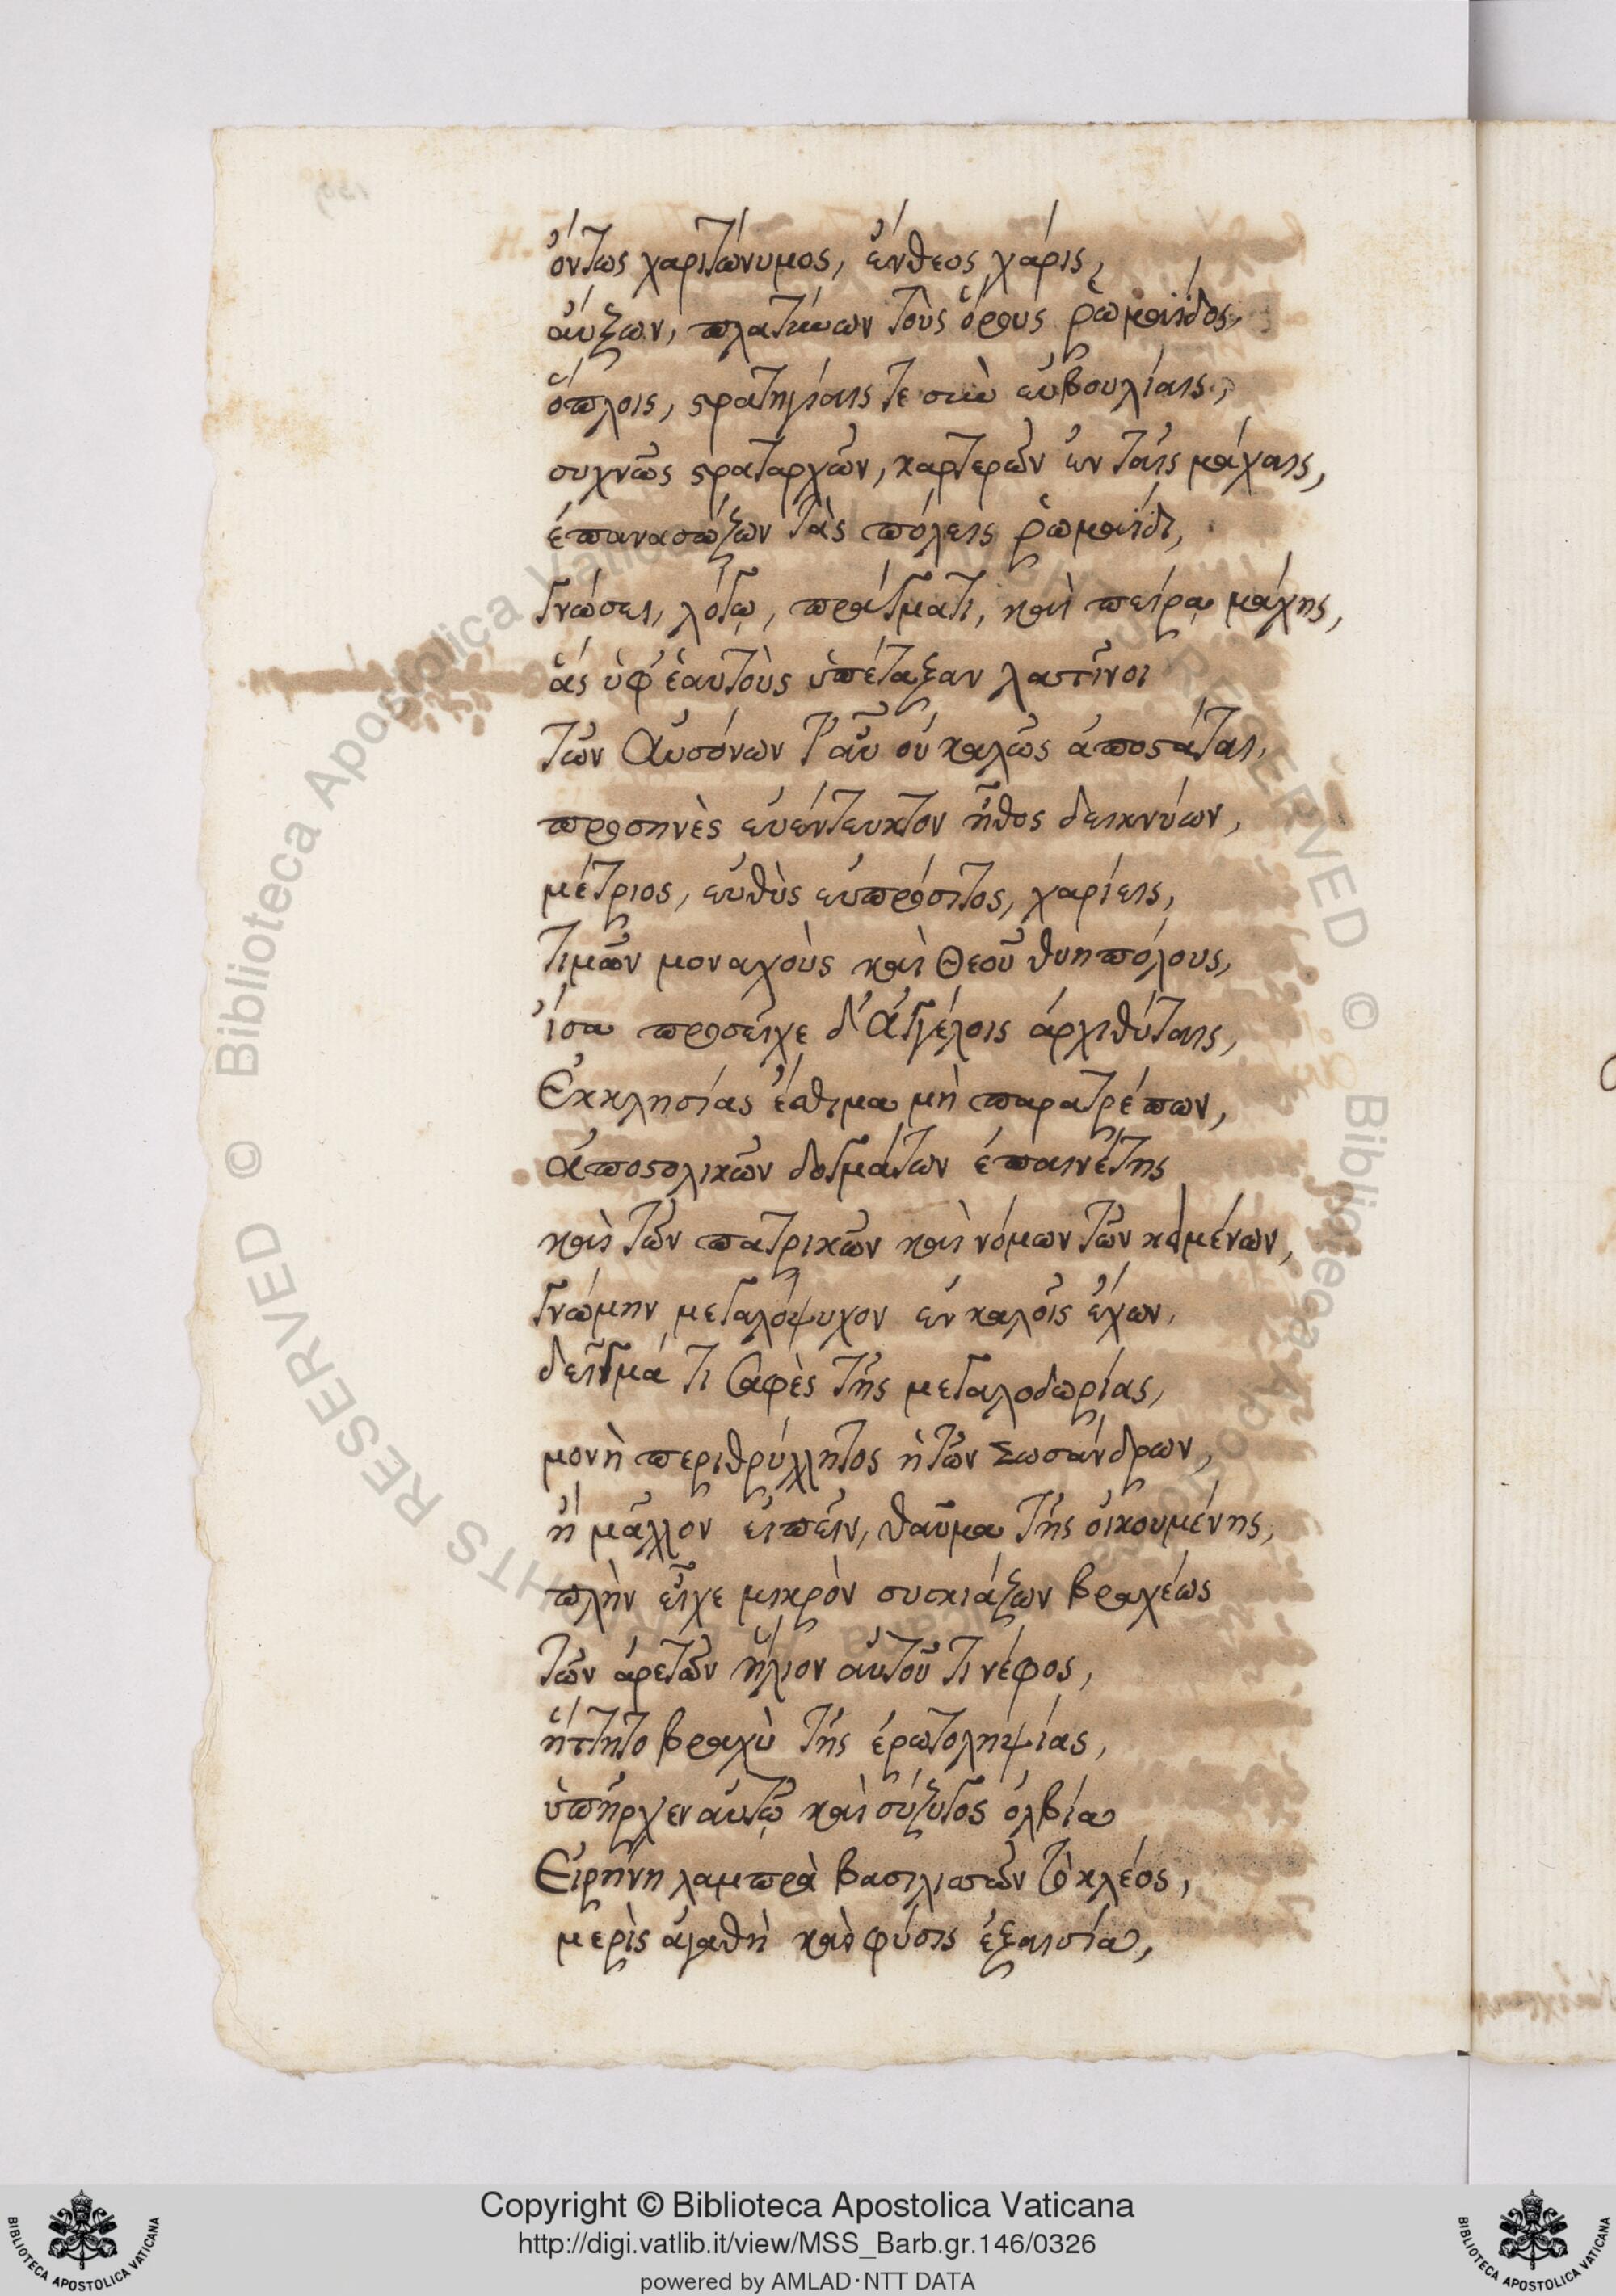 ὄντως χαριτώνυμος, ἔνθεος χάρις,
αὔξων, πλατύνων τοὺς ὅρους ῥωμαΐδος,
ὅπλοις, στρατηγίαις τε σὺν εὐβουλίαις,
συχνῶς στραταρχῶν, καρτερῶν ἐν ταῖς μάχαις,
ἐπανασώζων τὰς πόλεις ῥωμαΐδι,
γνώσει, λόγῳ, πράγματι, καὶ πείρᾳ μάχης,
ἃς ὑφ' ἑαυτοὺς ὑπέταξαν λατῖνοι
τῶν Αὐσόνων γ' αὖ οὐ καλῶς ἀποστάται,
προσηνὲς εὐέντευκτον ἦθος δεικνύων,
μέτριος, εὐθὺς εὐπρόσιτος, χαρίεις,
τιμῶν μοναχοὺς καὶ Θεοῦ θυηπόλους,
ἴσα προσεῖχε δ' Ἀγγέλοις ἀρχιθύταις,
Ἐκκλησίας ἔθιμα μὴ παρατρέπων,
ἀποστολικῶν δογμάτων ἐπαινέτης
καὶ τῶν πατρικῶν καὶ νόμων τῶν κειμένων,
γνώμην μεγαλόψυχον ἐν καλοῖς ἔχων,
δεῖγμά τι σαφὲς τῆς μεγαλοδωρίας,
μονὴ περιθρύλλητος ἡ τῶν Σωσάνδρων,
ἢ μᾶλλον εἰπεῖν, θαῦμα τῆς οἰκουμένης,
πλὴν εἶχε μικρὸν συσκιάζων βραχέως
τῶν ἀρετῶν ἥλιον αὐτοῦ τι νέφος,
ἥττητο βραχὺ τῆς ἐρωτοληψίας,
ὑπῆρχεν αὐτῷ καὶ σύζυγος ὀλβία
Εἰρήνη λαμπρὰ βασιλισσῶν τὸ κλέος,
μερὶς ἀγαθὴ καὶ φύσις ἐξαισία,
Copyright © Biblioteca Apostolica Vaticana
http://digi.vatlib.it/view/MSS_Barb.gr.146/0326
powered by AMLAD·NTT DATA